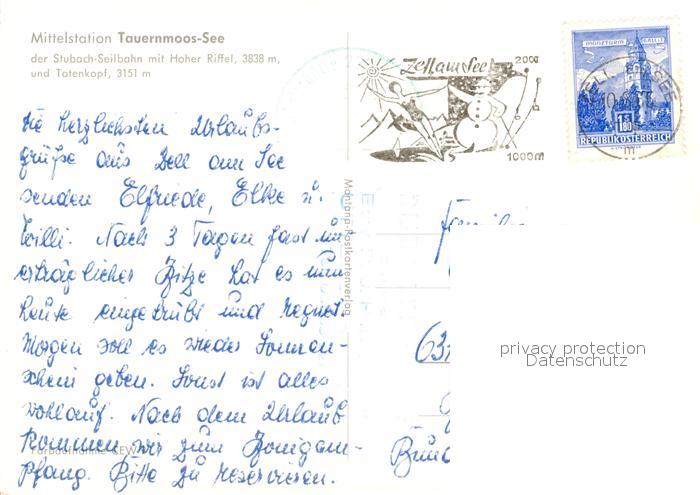 Mittelstation Tauernmoos-See
der Stubach-Seilbahn mit Hoher Riffel, 3838 m,
und Totenkopf, 3151 m
Die herzlichsten Urlaubs-
grüße aus Zell am See
senden Elfriede, Elke u.
Willi. Nach 3 Tagen fast un
erträglicher Hitze hat es nun
heute eingetrübt und regnet.
Morgen soll es wieder Sonnen-
schein geben. Sonst ist alles
wohlauf. Nach dem Urlaub
kommen wir zum Honigem-
pfang. Bitte zu reservieren.
Montana-Postkartenverlag
Zell am See
2000
1000m
MÜNZTURM
HALL I.T.
1.80
REPUBLIK ÖSTERREICH
Familie
63
privacy protection
Datenschutz